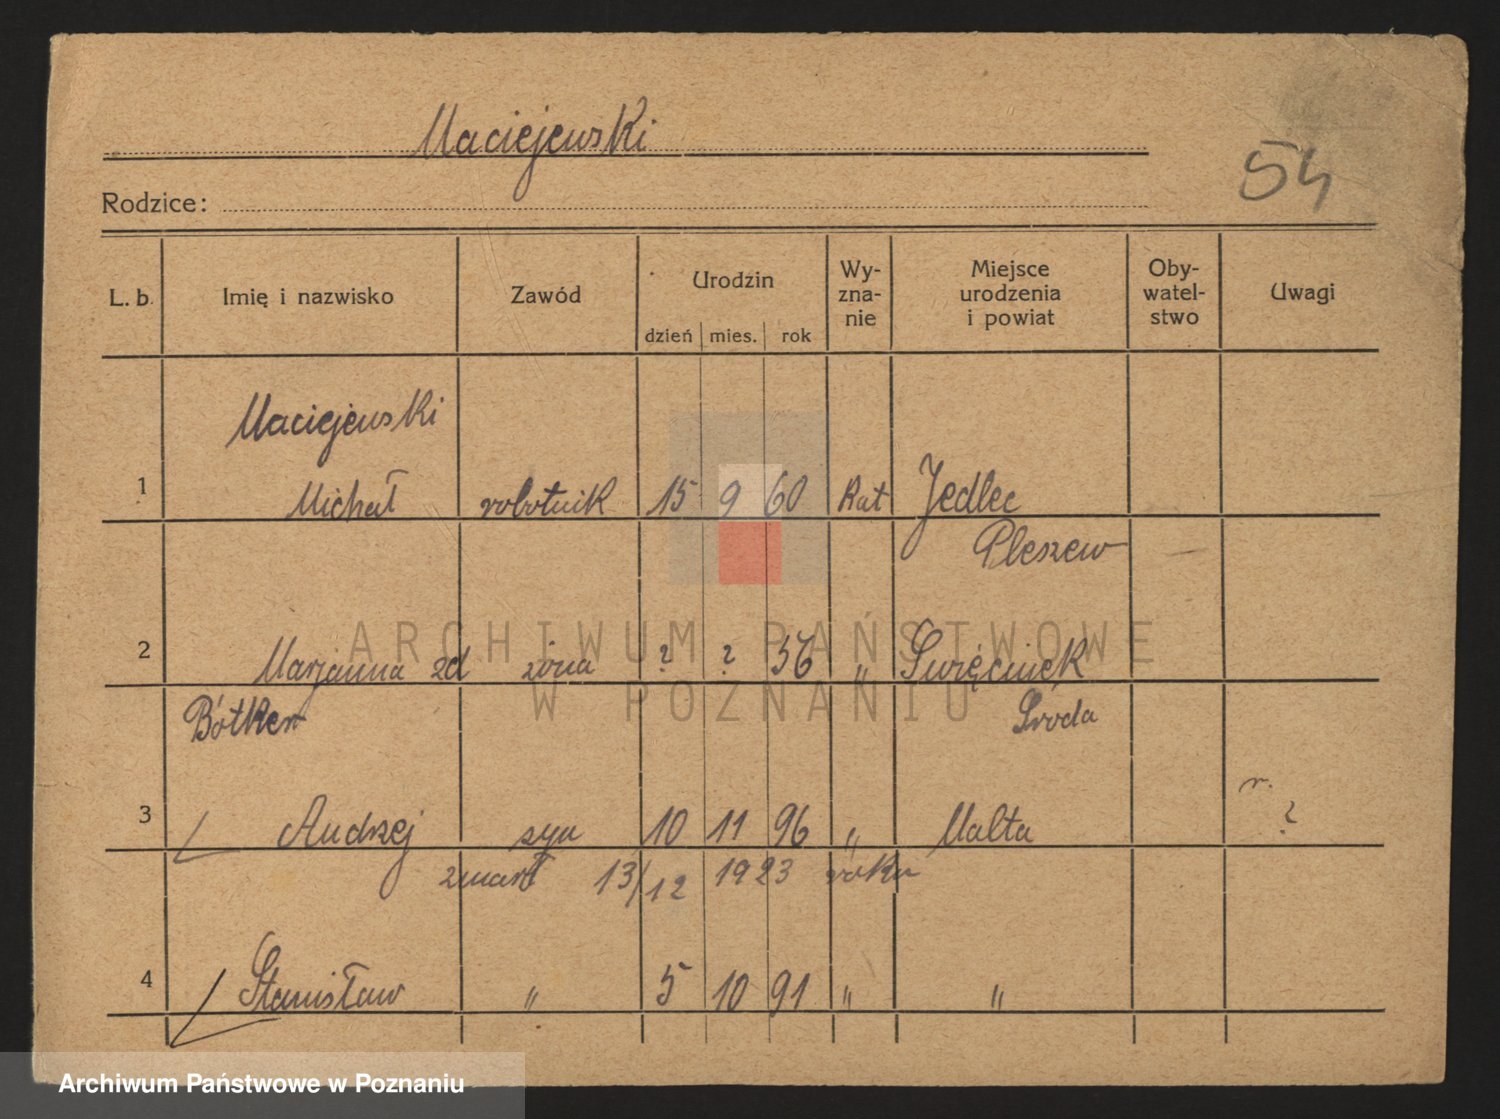 Maciejewski
54
Rodzice:
L. b. Imię i nazwisko Zawód Urodzin dzień mies. rok Wy-zna-nie Miejsce urodzenia i powiat Oby-watel-stwo Uwagi
Maciejewski
1 Michał robotnik 15 9 60 Kat Jedlec
Pleszew —
2 Marjanna zd żona ? ? 56 " Święcinek
Bótker Środa
3 Andrzej syn 10 11 96 " Malta ?
zmarł 13/12 1923 roku
4 Stanisław " 5 10 91 " "
ARCHIWUM PAŃSTWOWE
W POZNANIU
Archiwum Państwowe w Poznaniu